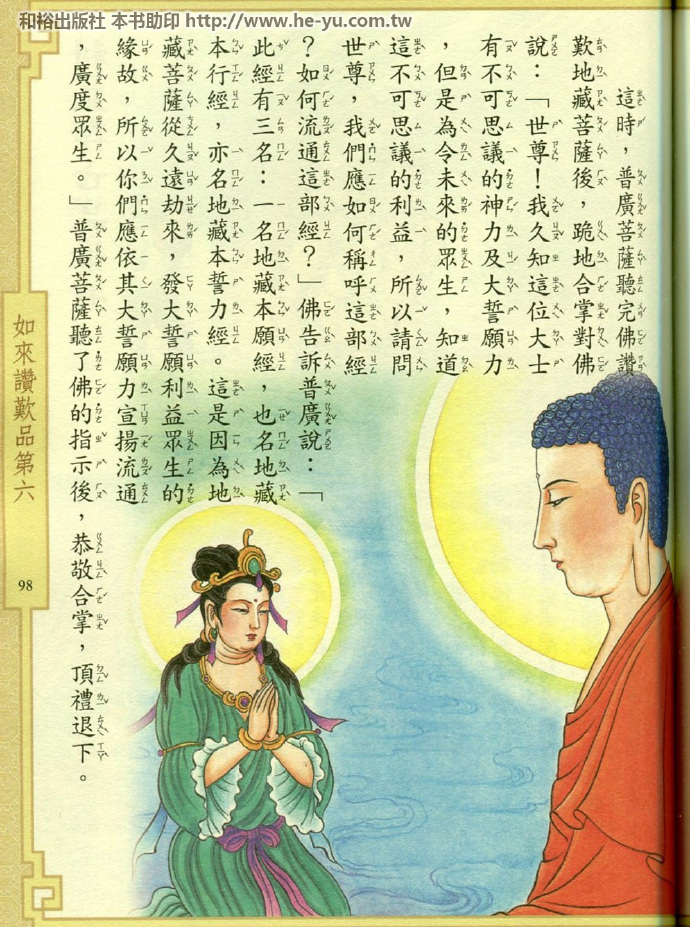 和裕出版社 本书助印 http://www.he-yu.com.tw
這時，普廣菩薩聽完佛讚
歎地藏菩薩後，跪地合掌對佛
說：「世尊！我久知這位大士
有不可思議的神力及大誓願力
，但是為令未來的眾生，知道
這不可思議的利益，所以請問
世尊，我們應如何稱呼這部經
？如何流通這部經？」佛告訴普廣說：「
此經有三名：一名地藏本願經，也名地藏
本行經，亦名地藏本誓力經。這是因為地
藏菩薩從久遠劫來，發大誓願利益眾生的
緣故，所以你們應依其大誓願力宣揚流通
，廣度眾生。」普廣菩薩聽了佛的指示後，恭敬合掌，頂禮退下。
如來讚歎品第六
98